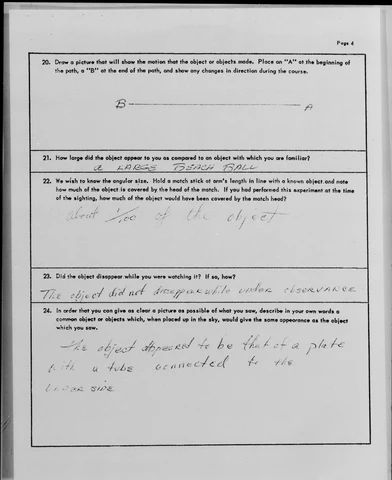 Page 6
20. Draw a picture that will show the motion that the object or objects made. Place an "A" at the beginning of
the path, a "B" at the end of the path, and show any changes in direction during the course.
B A
21. How large did the object appear to you as compared to an object with which you are familiar?
a LARGE BEACH BALL
22. We wish to know the angular size. Hold a match stick at arm's length in line with a known object and note
how much of the object is covered by the head of the match. If you had performed this experiment at the time
of the sighting, how much of the object would have been covered by the match head?
about 1/100 of the object
23. Did the object disappear while you were watching it? If so, how?
The object did not disappear while under observance
24. In order that you can give as clear a picture as possible of what you saw, describe in your own words a
common object or objects which, when placed up in the sky, would give the same appearance as the object
which you saw.
The object appeared to be that of a plate
with a tube connected to the
under side